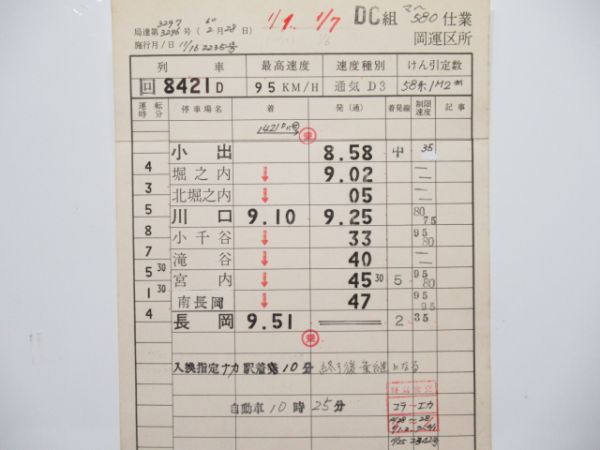 3297
局達第 3296 号 (60 2月28日) 1/9. 1/7 DC組 580 仕業
施行月/日 11/16 2235号 岡運区所
列 車 最高速度 速度種別 けん引定数
回 8421D 95KM/H 通気 D3 58系 1M2
運転時分 停車場名 着 発(通) 着発線 制限速度 記事
1421D
乗
小 出 8.58 中 35
4
堀之内 ↓ 9.02
3
北堀之内 ↓ 05
5
川 口 9.10 9.25 80 75
8
小千谷 ↓ 33 95 80
7
滝 谷 ↓ 40
5 30
宮 内 ↓ 45 30 5 95 80
1 30
南長岡 ↓ 47 95 95
4
長 岡 9.51 2 35
乗
入換指定ナカ駅着乗10分 終了後 となる
自動車10時25分
エラーエカ